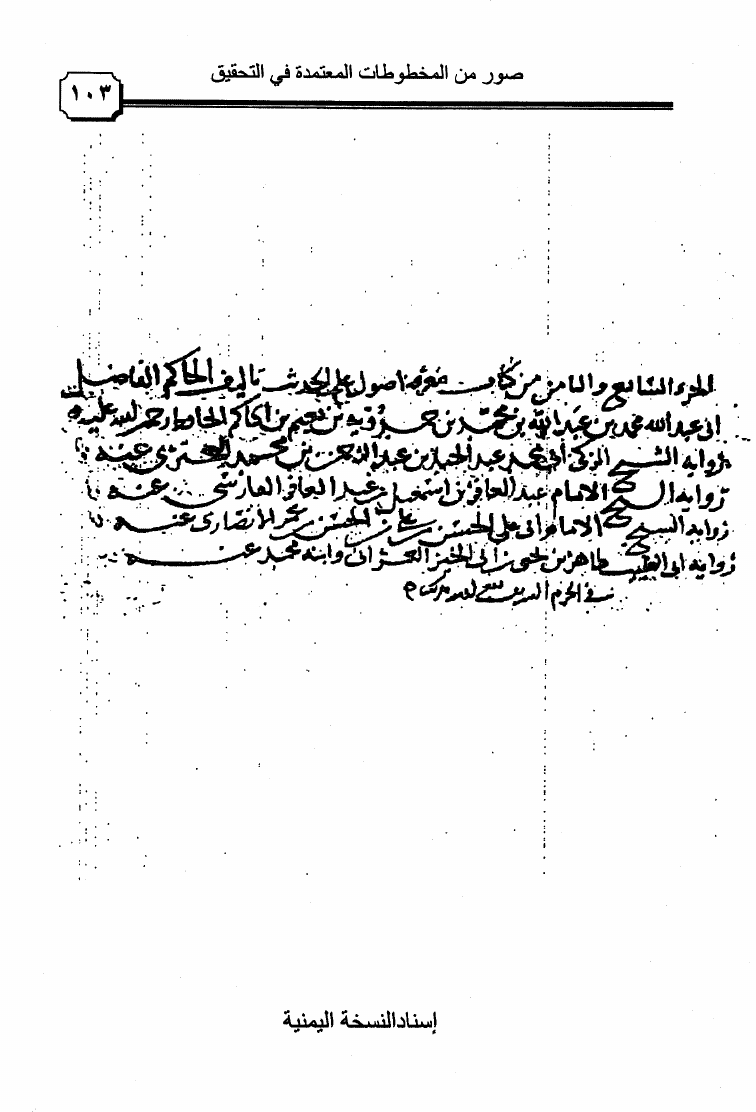 صور من المخطوطات المعتمدة في التحقيق
١٠٣
الجزء السابع والثامن من كتاب معرفة اصول علم الحديث تاليف الحاكم الفاضل
ابى عبد الله محمد بن عبد الله بن محمد بن حمدويه بن نعيم بن الحاكم الحافظ رحمة الله عليه
رواية الشيخ الزكى أبى محمد عبد الحميد بن عبد الرحمن بن محمد البحترى عنه
رواية الشيخ الامام عبد الغافر بن اسمعيل بن عبد الغافر الفارسى عنه
رواية الشيخ الامام ابى على الحسن بن على بن الحسن الانصارى عنه
رواية ابى الطيب طاهر بن يحيى بن ابى الخير العمرانى وابنه محمد عنه
فى الحرم الشريف
إسناد النسخة اليمنية